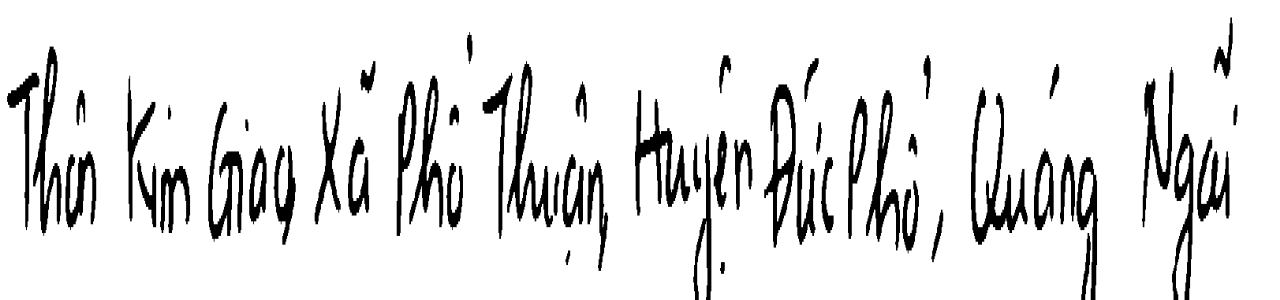 Thôn Kim Giao, Xã Phổ Thuận, Huyện Đức Phổ, Quảng Ngãi